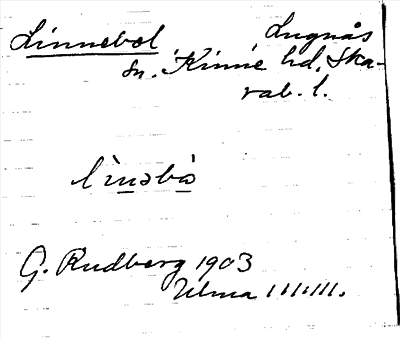 Linnebol Lugnås
sn. Kinne hd, Ska-
rab. l.
lìnəbò
G. Rudberg 1903
Ulma ///////.